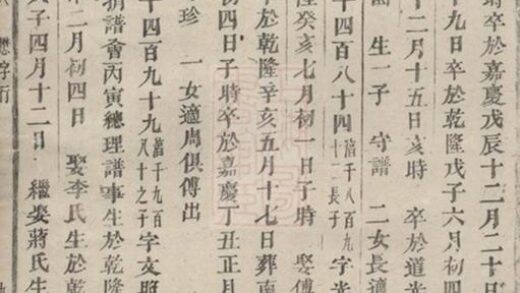 時卒於嘉慶戊辰十二月二十日
十九日卒於乾隆戊子六月初四
十二月十五日亥時 卒於道光
生一子 守譜 二女長適
十四百八十四 萬千八百九十一長子 字光
隆癸亥七月初一日子時 娶傅
卒於乾隆辛亥五月十七日葬南
初四日子時卒於嘉慶丁丑正月
珍 一女適周俱傅出
十四百九十九 萬千九百八十之子 字文照
捐譜會丙寅總理譜事生於乾隆
二月初四日 娶李氏生於乾
子四月十二日 繼娶蔣氏生
懋字行